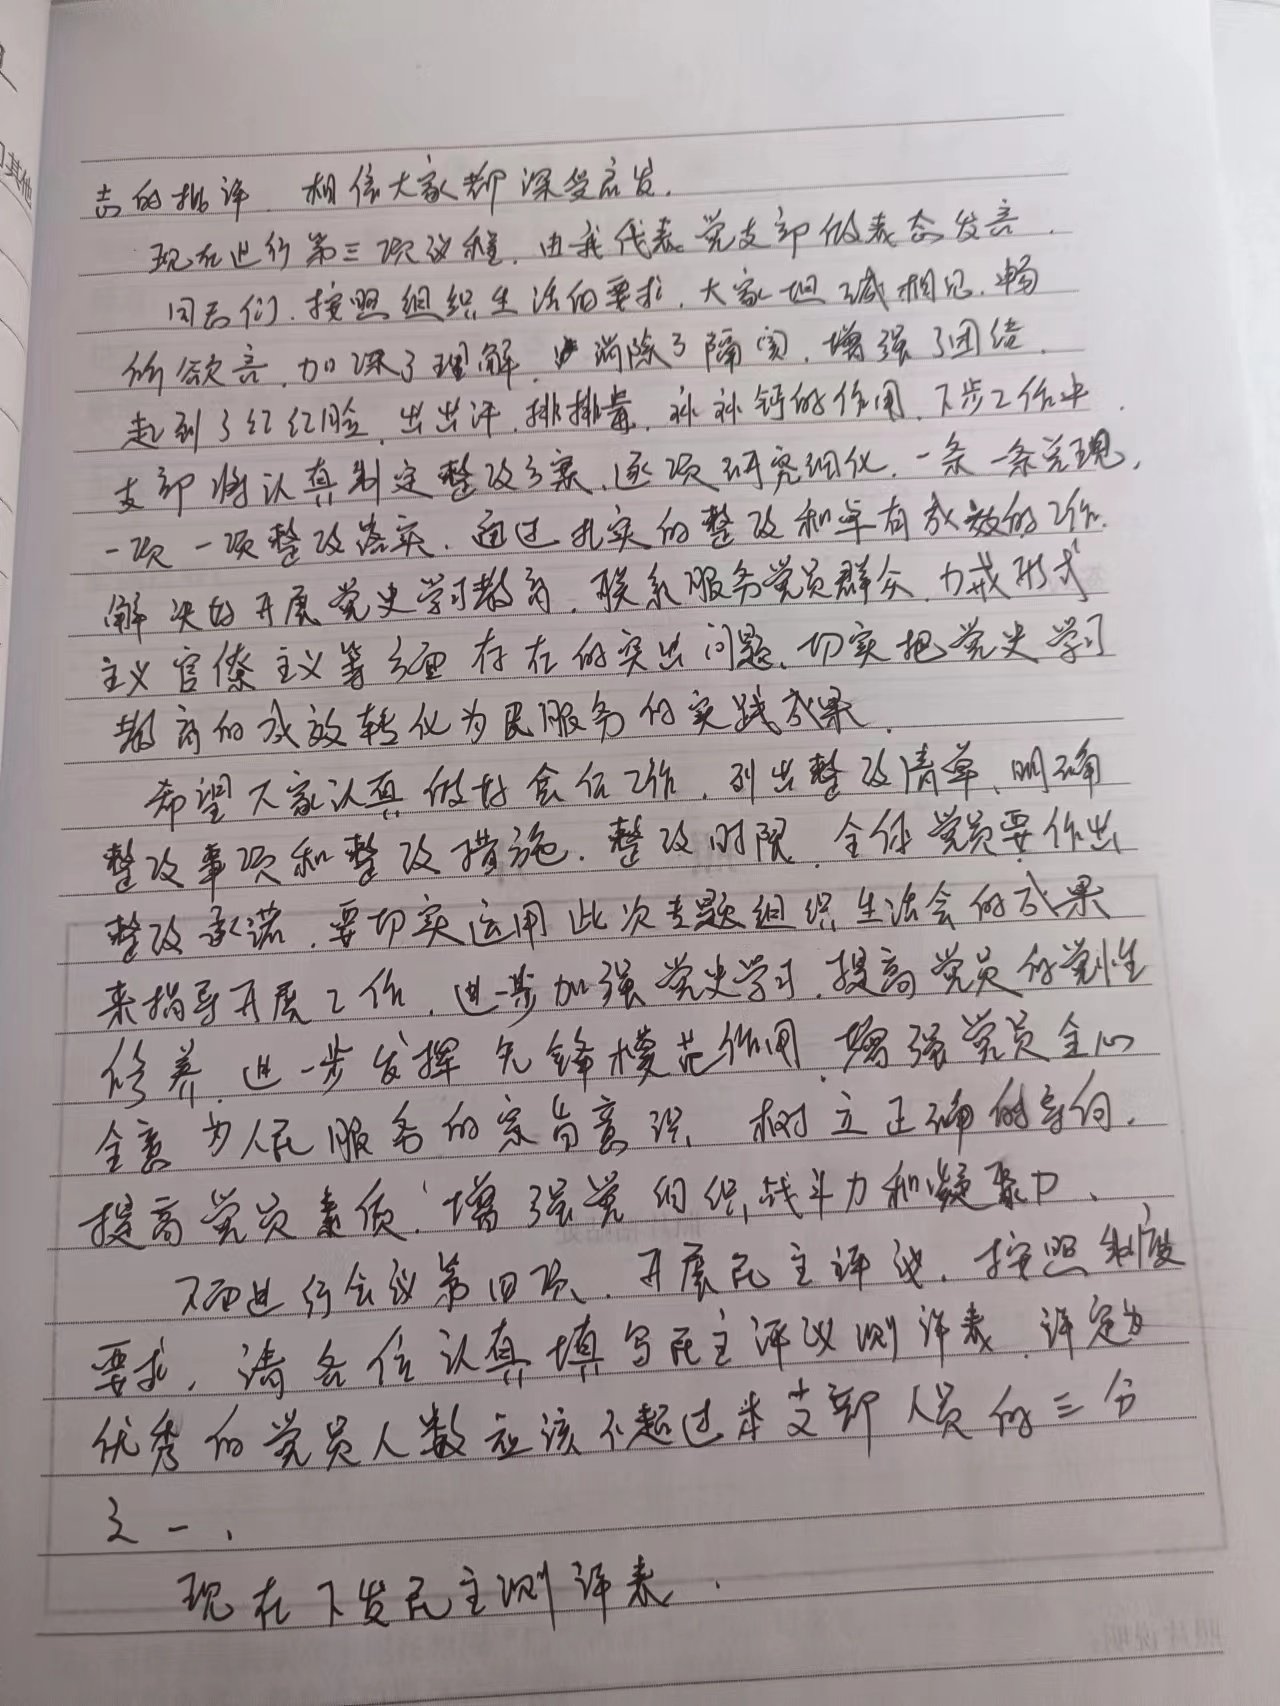 志的批评，相信大家都深受启发．
现在进行第三项议程，由我代表党支部做表态发言．
同志们．按照组织生活的要求．大家坦诚相见．畅
所欲言，加深了理解，消除了隔阂．增强了团结．
起到了红红脸，出出汗，排排毒，补补钙的作用，下步工作中．
支部将认真制定整改方案、逐项研究细化，一条一条兑现，
一项一项整改落实．通过扎实的整改和卓有成效的工作．
解决好开展党史学习教育，联系服务党员群众，力戒形式
主义官僚主义等方面存在的突出问题、切实把党史学习
教育的成效转化为民服务的实践成果．
希望大家认真做好会后工作，列出整改清单、明确
整改事项和整改措施．整改时限．全体党员要作出
整改承诺．要切实运用此次专题组织生活会的成果
来指导开展工作，进一步加强党史学习．提高党员的党性
修养，进一步发挥先锋模范作用．增强党员全心
全意为人民服务的宗旨意识，树立正确的导向．
提高党员素质．增强党组织战斗力和凝聚力、
下面进行会议第四项、开展民主评议．按照制度
要求，请各位认真填写民主评议测评表．评定为
优秀的党员人数应该不超过本支部人员的三分
之一、
现在下发民主测评表．
其他